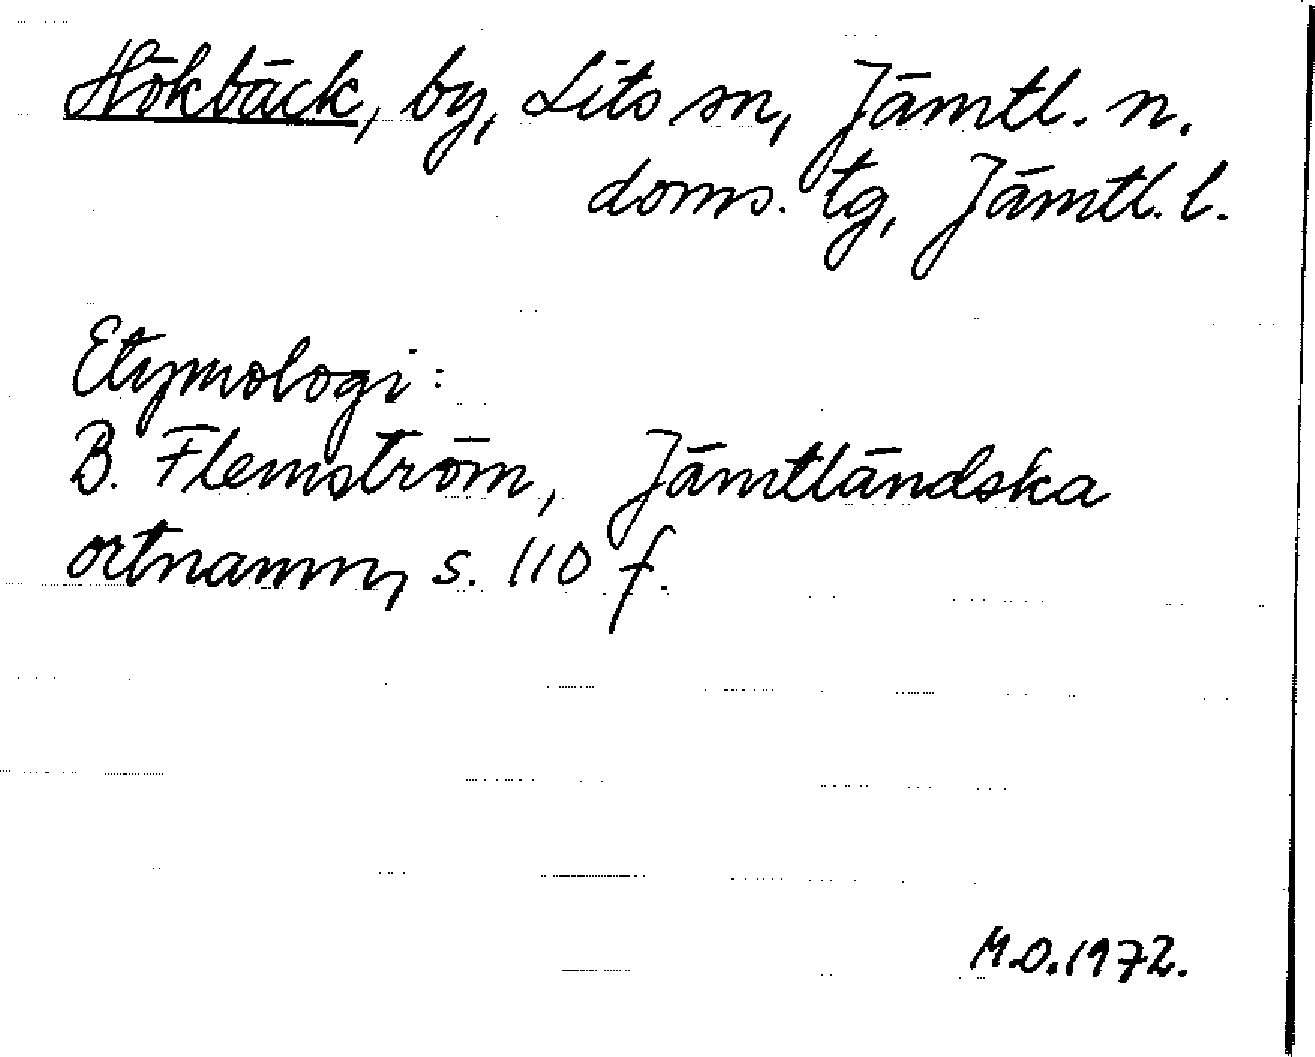 Hökbäck, by, Lits sn, Jämtl. n.
doms. tg, Jämtl. l.
Etymologi:
B. Flemström, Jämtländska
ortnamn, s. 110 f.
M.O. 1972.